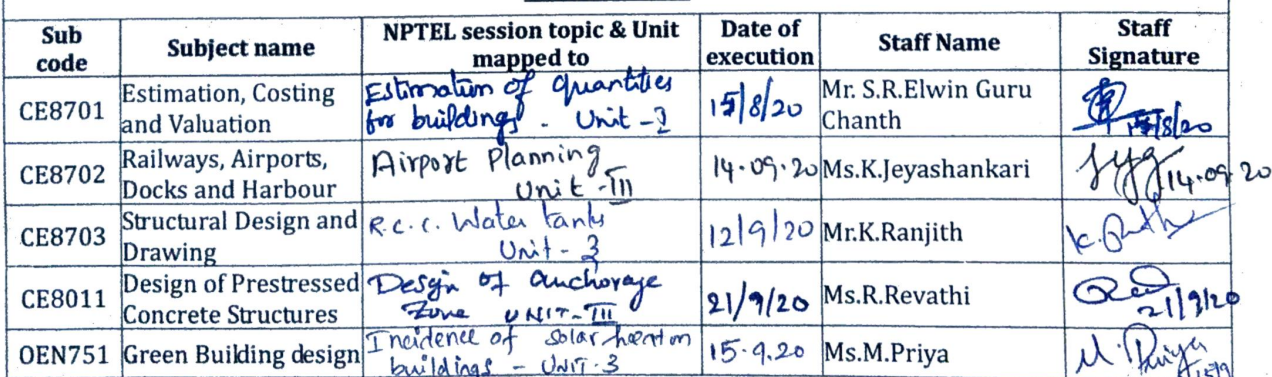 Sub code
Subject name
NPTEL session topic & Unit mapped to
Date of execution
Staff Name
Staff Signature
CE8701
Estimation, Costing and Valuation
Estimation of quantities for buildings - Unit -
15/8/20
Mr. S.R.Elwin Guru Chanth
15/8/20
CE8702
Railways, Airports, Docks and Harbour
Airport Planning Unit -III
14.09.20
Ms.K.Jeyashankari
14.09.20
CE8703
Structural Design and Drawing
R.C.C. Water tanks Unit - 3
12/9/20
Mr.K.Ranjith
CE8011
Design of Prestressed Concrete Structures
Design of anchorage Zone UNIT-III
21/9/20
Ms.R.Revathi
21/9/20
OEN751
Green Building design
Incidence of solar heat on buildings - UNIT-3
15.9.20
Ms.M.Priya
M. Priya